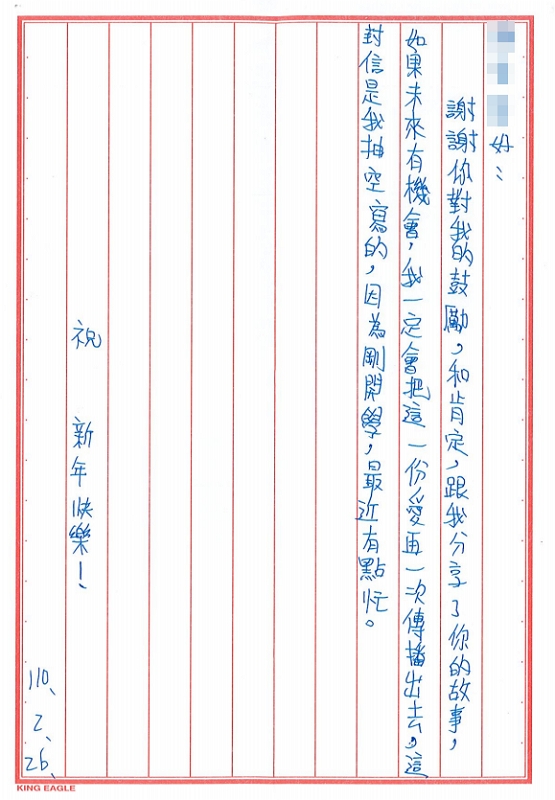 好：
謝謝你對我的鼓勵，和肯定，跟我分享了你的故事，
如果未來有機會，我一定會把這一份愛再一次傳播出去。這
封信是我抽空寫的，因為剛開學，最近有點忙。
祝　　新年快樂！
110、2、26、
KING EAGLE